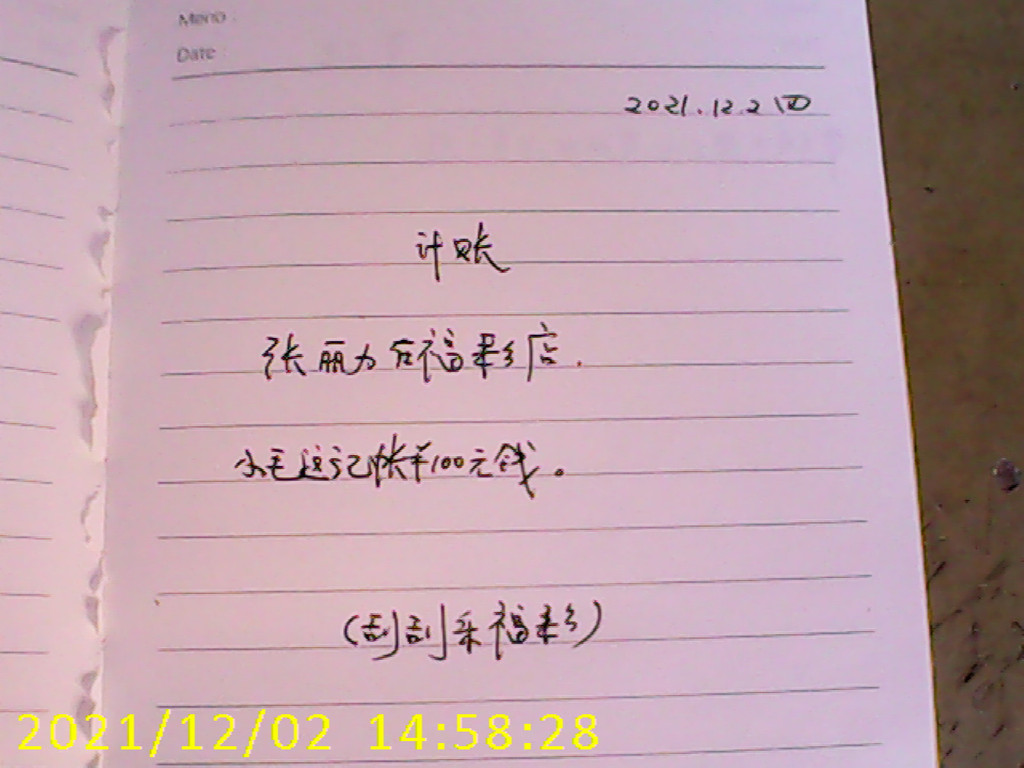 Memo :
Date :
2021.12.2 四
计账
张丽为右福彩店.
小毛这记帐¥100元钱。
(刮刮采福彩)
2021/12/02 14:58:28